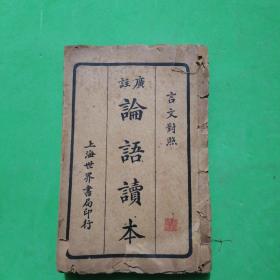 言文對照
廣註
論語讀本
上海世界書局印行